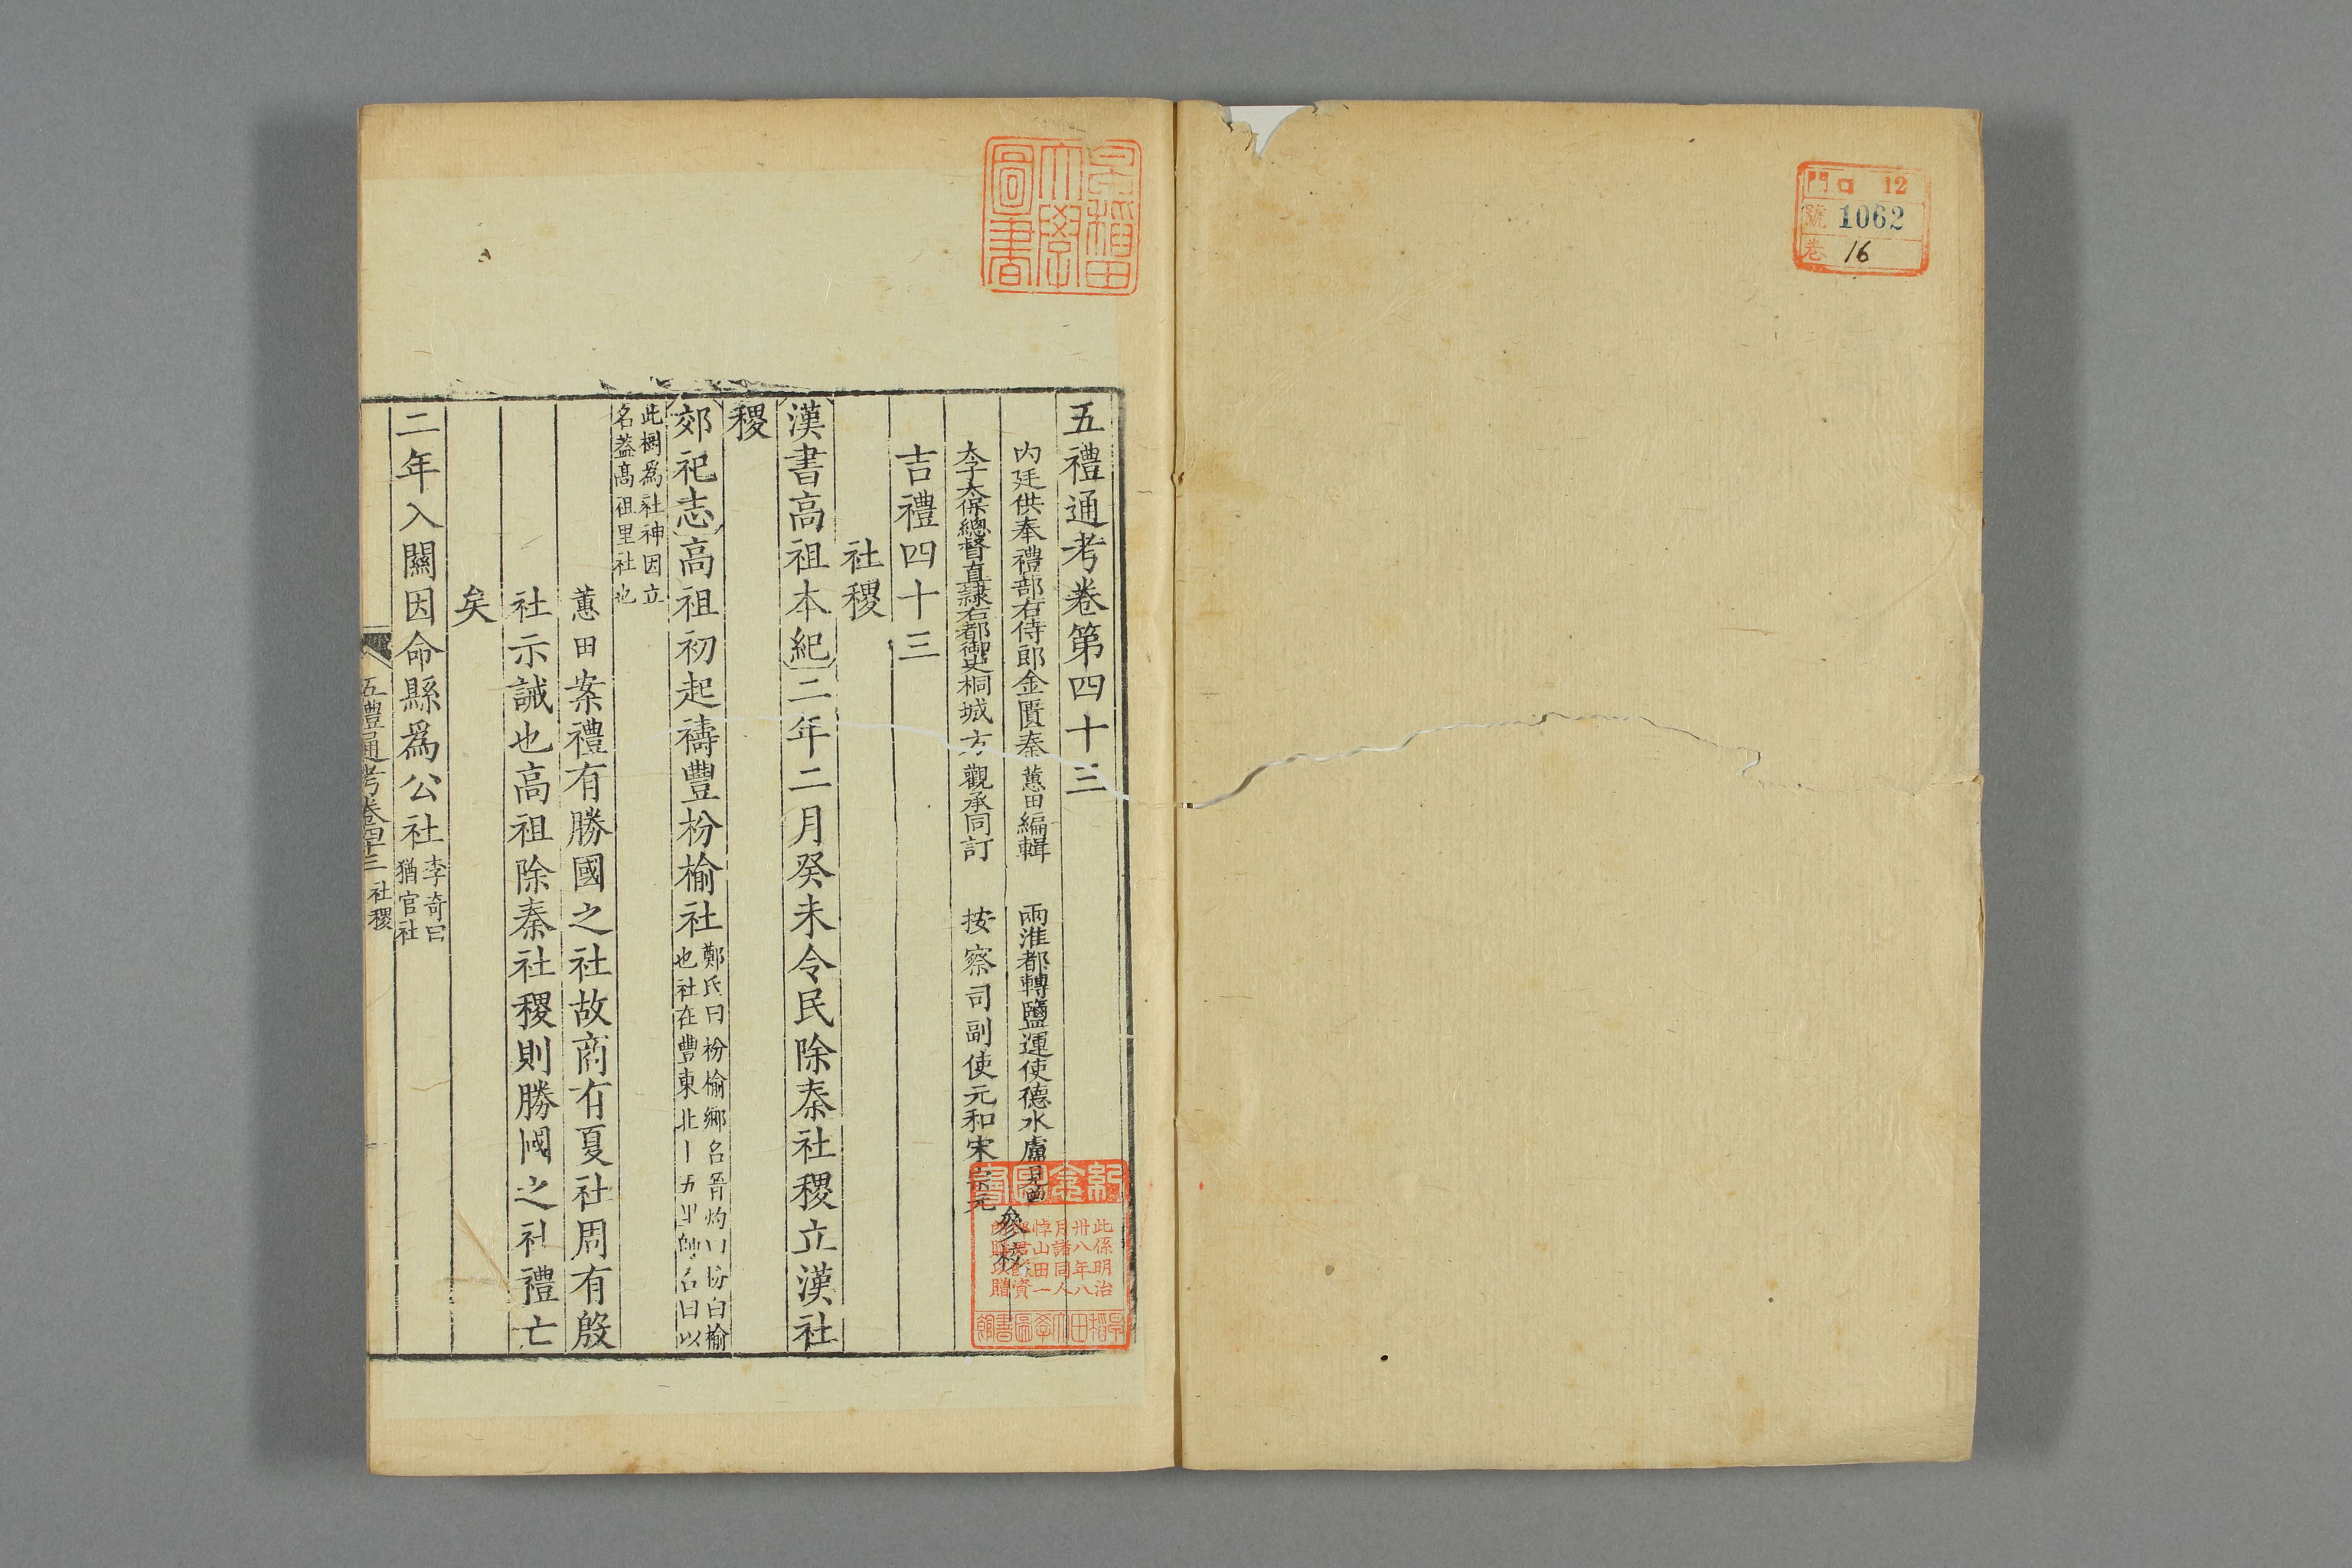 門 ロ 12
號 1062
卷 16
早稲田大學圖書
五禮通考卷第四十三
内廷供奉禮部右侍郎金匱秦蕙田編輯 兩淮都轉鹽運使德水盧見曾
太子太保總督直隷右都御史桐城方觀承同訂 按察司副使元和宋宗元
參校
吉禮四十三
社稷
漢書高祖本紀二年二月癸未令民除秦社稷立漢社
稷
郊祀志高祖初起禱豐枌榆社
鄭氏曰枌榆鄉名晉灼曰枌白榆
也社在豐東北十五里師古曰以
此樹爲社神因立
名葢高祖里社也
蕙田案禮有勝國之社故商有夏社周有殷
社示誡也高祖除秦社稷則勝國之社禮亡
矣
二年入關因命縣爲公社
李奇曰
猶官社
五禮通考卷四十三 社稷
紀念圖書
此係明治
卅八年八
月諸同人
悼山田一